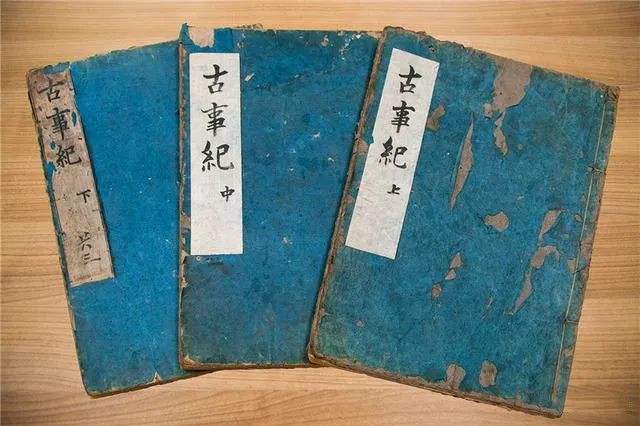 古事紀 上
古事紀 中
古事紀 下
共三